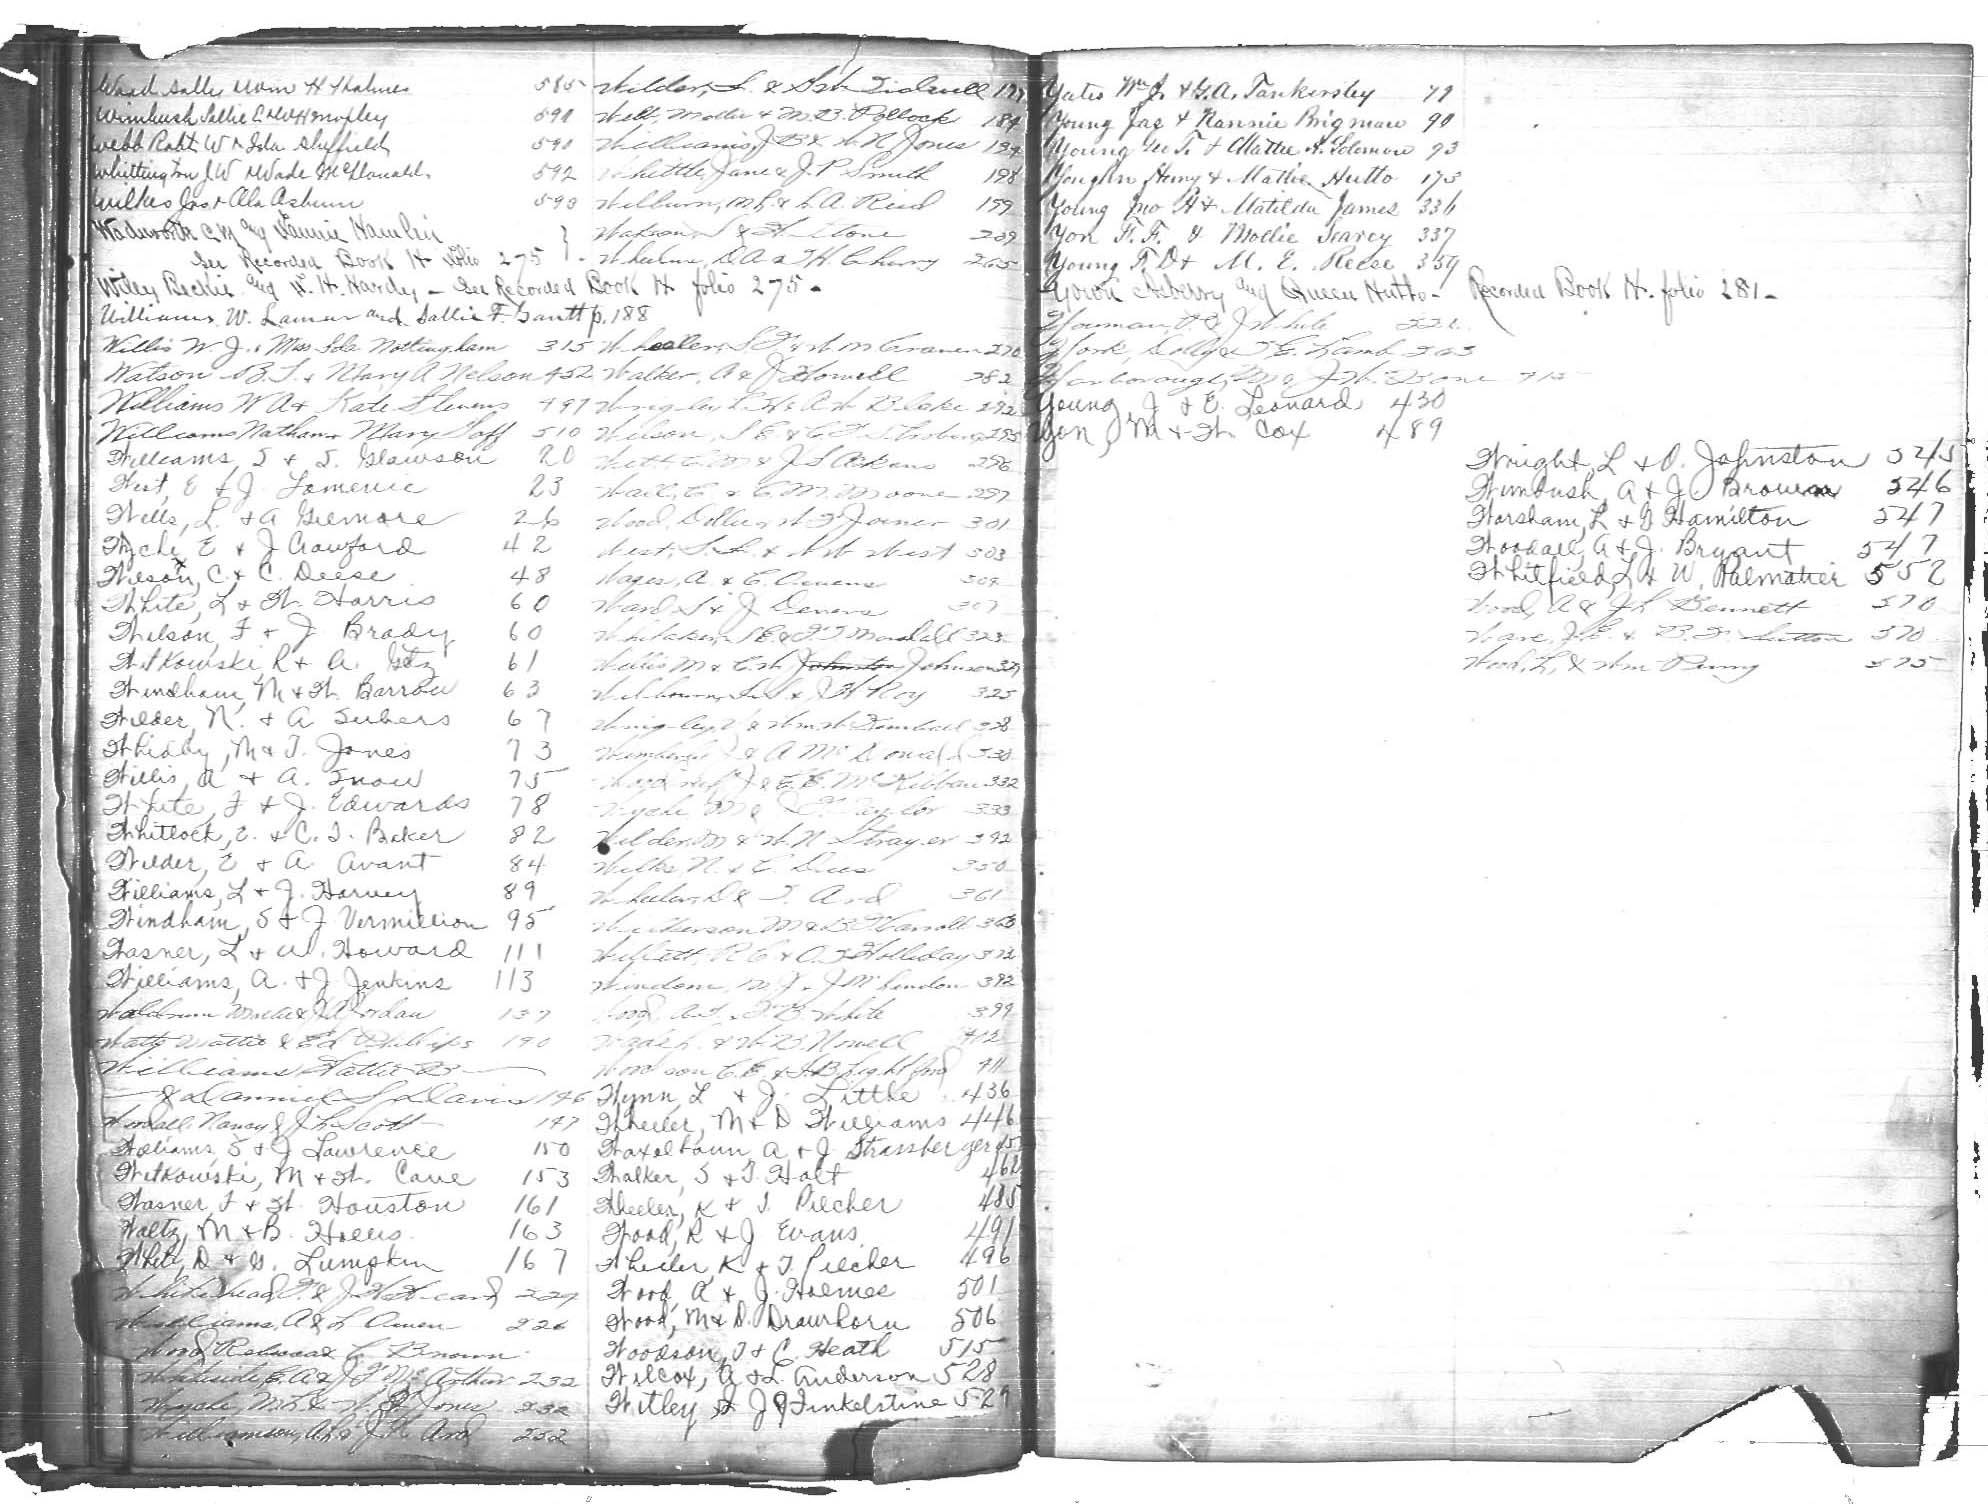 Wood Sallie & Wim H Holmes 585
Wimbush Sallie C & W H Mosley 591
Webb Robt W & Ida Sheffield 591
Whittington J W & Wade McDonald 592
Wilkes Jas & Ola Asburn 593
Wadsworth C M and Fannie Hamlin
See Recorded Book H folio 275
Wiley Beckie and W. H. Hardy - See Recorded Book H folio 275 -
Williams W. Lamar and Sallie F. Gantt p. 188
Willis W J. & Miss Ida Nottingham 315
Watson B. T. & Mary A Nelson 452
Williams W A & Kate Stevens 497
Williams Nathan & Mary Goff 510
Williams, S & S. Glawson 20
West, E & J. 23
Wells, L. & A Gilmore 26
Wyche, E & J Crawford 42
Wilson, C. & C. Deese 48
White, L & W. Harris 60
Wilson, F & J. Brady 60
Witkowski, R & A. Getz 61
Windham, M & W. Barrow 63
Wilder, N. & A Seibers 67
Whidby, M & T. Jones 73
Willis, A & A. Snow 75
White, F & J. Edwards 78
Whitlock, E. & C. T. Baker 82
Wilder, E & A. Avant 84
Williams, L & J. Harvey 89
Windham, S & J Vermillion 95
Wasner, L & W. Howard 111
Williams, A. & J. Jenkins 113
& J Jordan 137
Watts Mattie & Ed Phillips 190
Williams Hattie B
& Dannie S Davis 146
Nancy & J L Scott 147
Williams, S & J Lawrence 150
Witkowski, M & W. Cane 153
Wasner, F & W. Houston 161
Waltz, M & B. Hollis. 163
White, D & G. Lumpkin 167
Whitehead, F. & J. H. Heard 224
Williams, A & L Owen 226
Wood Rebecca & C Brown
Whiteside, C. A & J. F. McArthur 232
Wyche, M. L & W. H Jones 232
Williamson, A L & J. H Ard 252
Wilder, L. & S W Tidwell
Will, Mollie & M. B. Pollock 184
Williams, J B & W N Jones 194
Whittle, Jane & J. P Smith 198
Wilburn, M L & L A. Reid 199
Watson, S & H Stone 209
Wheeler, D A & T H. Cherry 265
Wheeler, S. F & W M Craven 270
Walker, A & J Howell 282
Wrigley, L. H & A W Blake 292
Wilson, S E & C F Stroberg 295
Witt, C. M & J S Adams 296
Wail, C & C. M. Moore 297
Wood, Dollie & W F Joiner 301
West, S. L. & W W West 303
Wages, A & C. Owens 304
Ward S & J Deners 307
Whitaker, S E & F T Mandall 323
Willis M & C. W. Johnston Johnson
Wilbourn, & J H Roy 325
Wrigley, & Wm W Kimball 328
& A McDonald 330
& E. E. McKibban 332
Wyche M & Taylor 333
Wilder, M & W. N Strayer 342
Wilks, N. & C. Dees 350
Wheeler, D & T. Ard 361
Wilkerson M & B. F Carroll 366
Willett, R. C & O. F Holliday 372
Windom, M J & J McLendon 392
Wood, & T. B. White 399
Wade, L. & W. D. Nowell 402
Woodson C. E. & T. B. Lightfoot 411
Wynn, L & J. Little 436
Wheeler, M & D Williams 446
Waxelbaum, A & J Strassberger 451
Walker, S & T. Holt 461
Wheeler, K & T. Pilcher 485
Wood, R & J Evans 491
Wheeler, K & T Pilcher 496
Wood A & J. Holmes 501
Wood, M & D. Drawhorn 506
Woodson, T & C. Heath 515
Wilcox, A & L Anderson 528
Witley & J J Finkelstine 529
Yates Wm J. & G. A. Tankersley 79
Young Jas & Nannie Brigman 90
Young Geo T. & Mattie A. Solomon 93
Youghn Henry & Mattie Hutto 173
Young Jno H & Matilda James 336
Yon F. F. & Mollie Searcy 337
Young T. D & M. E. Reese 359
Asberry and Queen Hutto - Recorded Book H. folio 281 -
Youman, & J White 321
York, Dolly & T G. Lamb 363
Yarborough, M & J W. Bone 415
Young, J & E. Leonard 430
Yon, M & W. Cox 489
Wright, L & O. Johnston 545
Wimbush, A & J Brown 546
Worsham, L & F Hamilton 547
Woodall, A & J. Bryant 547
Whitfield, L & W. Palmatier 552
Wood, A & J L Bennett 570
Ware, J. E. & B. F. Sutton 570
Wood, L, & Wm Penny 575